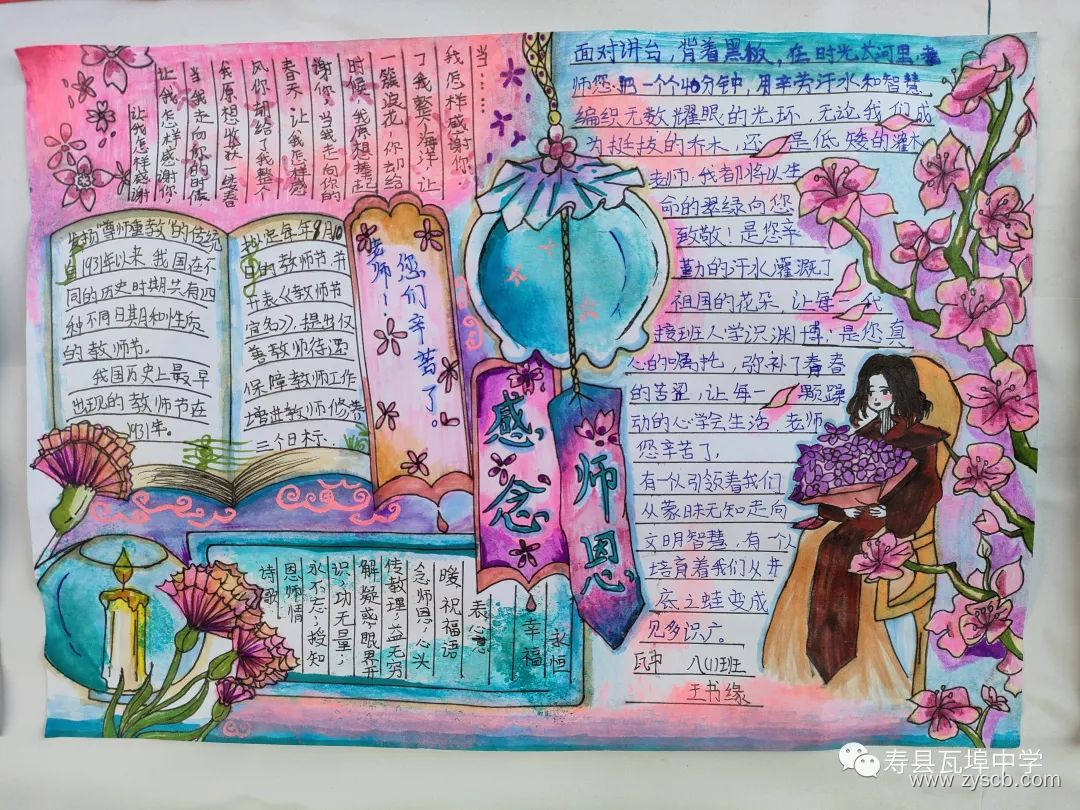 当……
我怎样感谢你
了我整个海洋，让
一簇浪花，你却给
时候，我原想捧起
谢你，当我走向你的
春天，让我怎样感
风你却给了我整个
我原想收获一缕春
当我走向你的时候
让我怎样感谢你，
让我怎样感谢
发扬"尊师重教"的传统
自1931年以来，我国在不
同的历史时期共有四
种不同日期和性质
的教师节。
我国历史上最早
出现的教师节在
1931年。
定每年9月10
日的教师节，节
《教师节
宣言》，提出改
善教师待遇
保障教师工作
增进教师修养
三个目标.
老师！
您们辛苦了。
感念
师恩
面对讲台，背着黑板，在时光长河里，老
师您把一个个40分钟，用辛劳汗水和智慧
编织无数耀眼的光环，无论我们成
为挺拔的乔木，还是低矮的灌木
老师，我都将以生
命的翠绿向您
致敬！是您辛
勤的汗水灌溉了
祖国的花朵，让每一代
接班人学识渊博；是您真
心的嘱托，弥补了青春
的苦涩，让每一颗躁
动的心学会生活，老师
您辛苦了，
有一从引领着我们
从蒙昧无知走向
文明智慧，有一从
培育着我们从井
底之蛙变成
见多识广。
瓦中 八(4)班
王书缘
永恒
幸福
表心意
暖，祝福语
念师恩，心头
传教理，益无穷
解疑惑，眼界开
识，功无量；
永不忘；授知
恩师情
诗歌
寿县瓦埠中学
www.zyscb.com